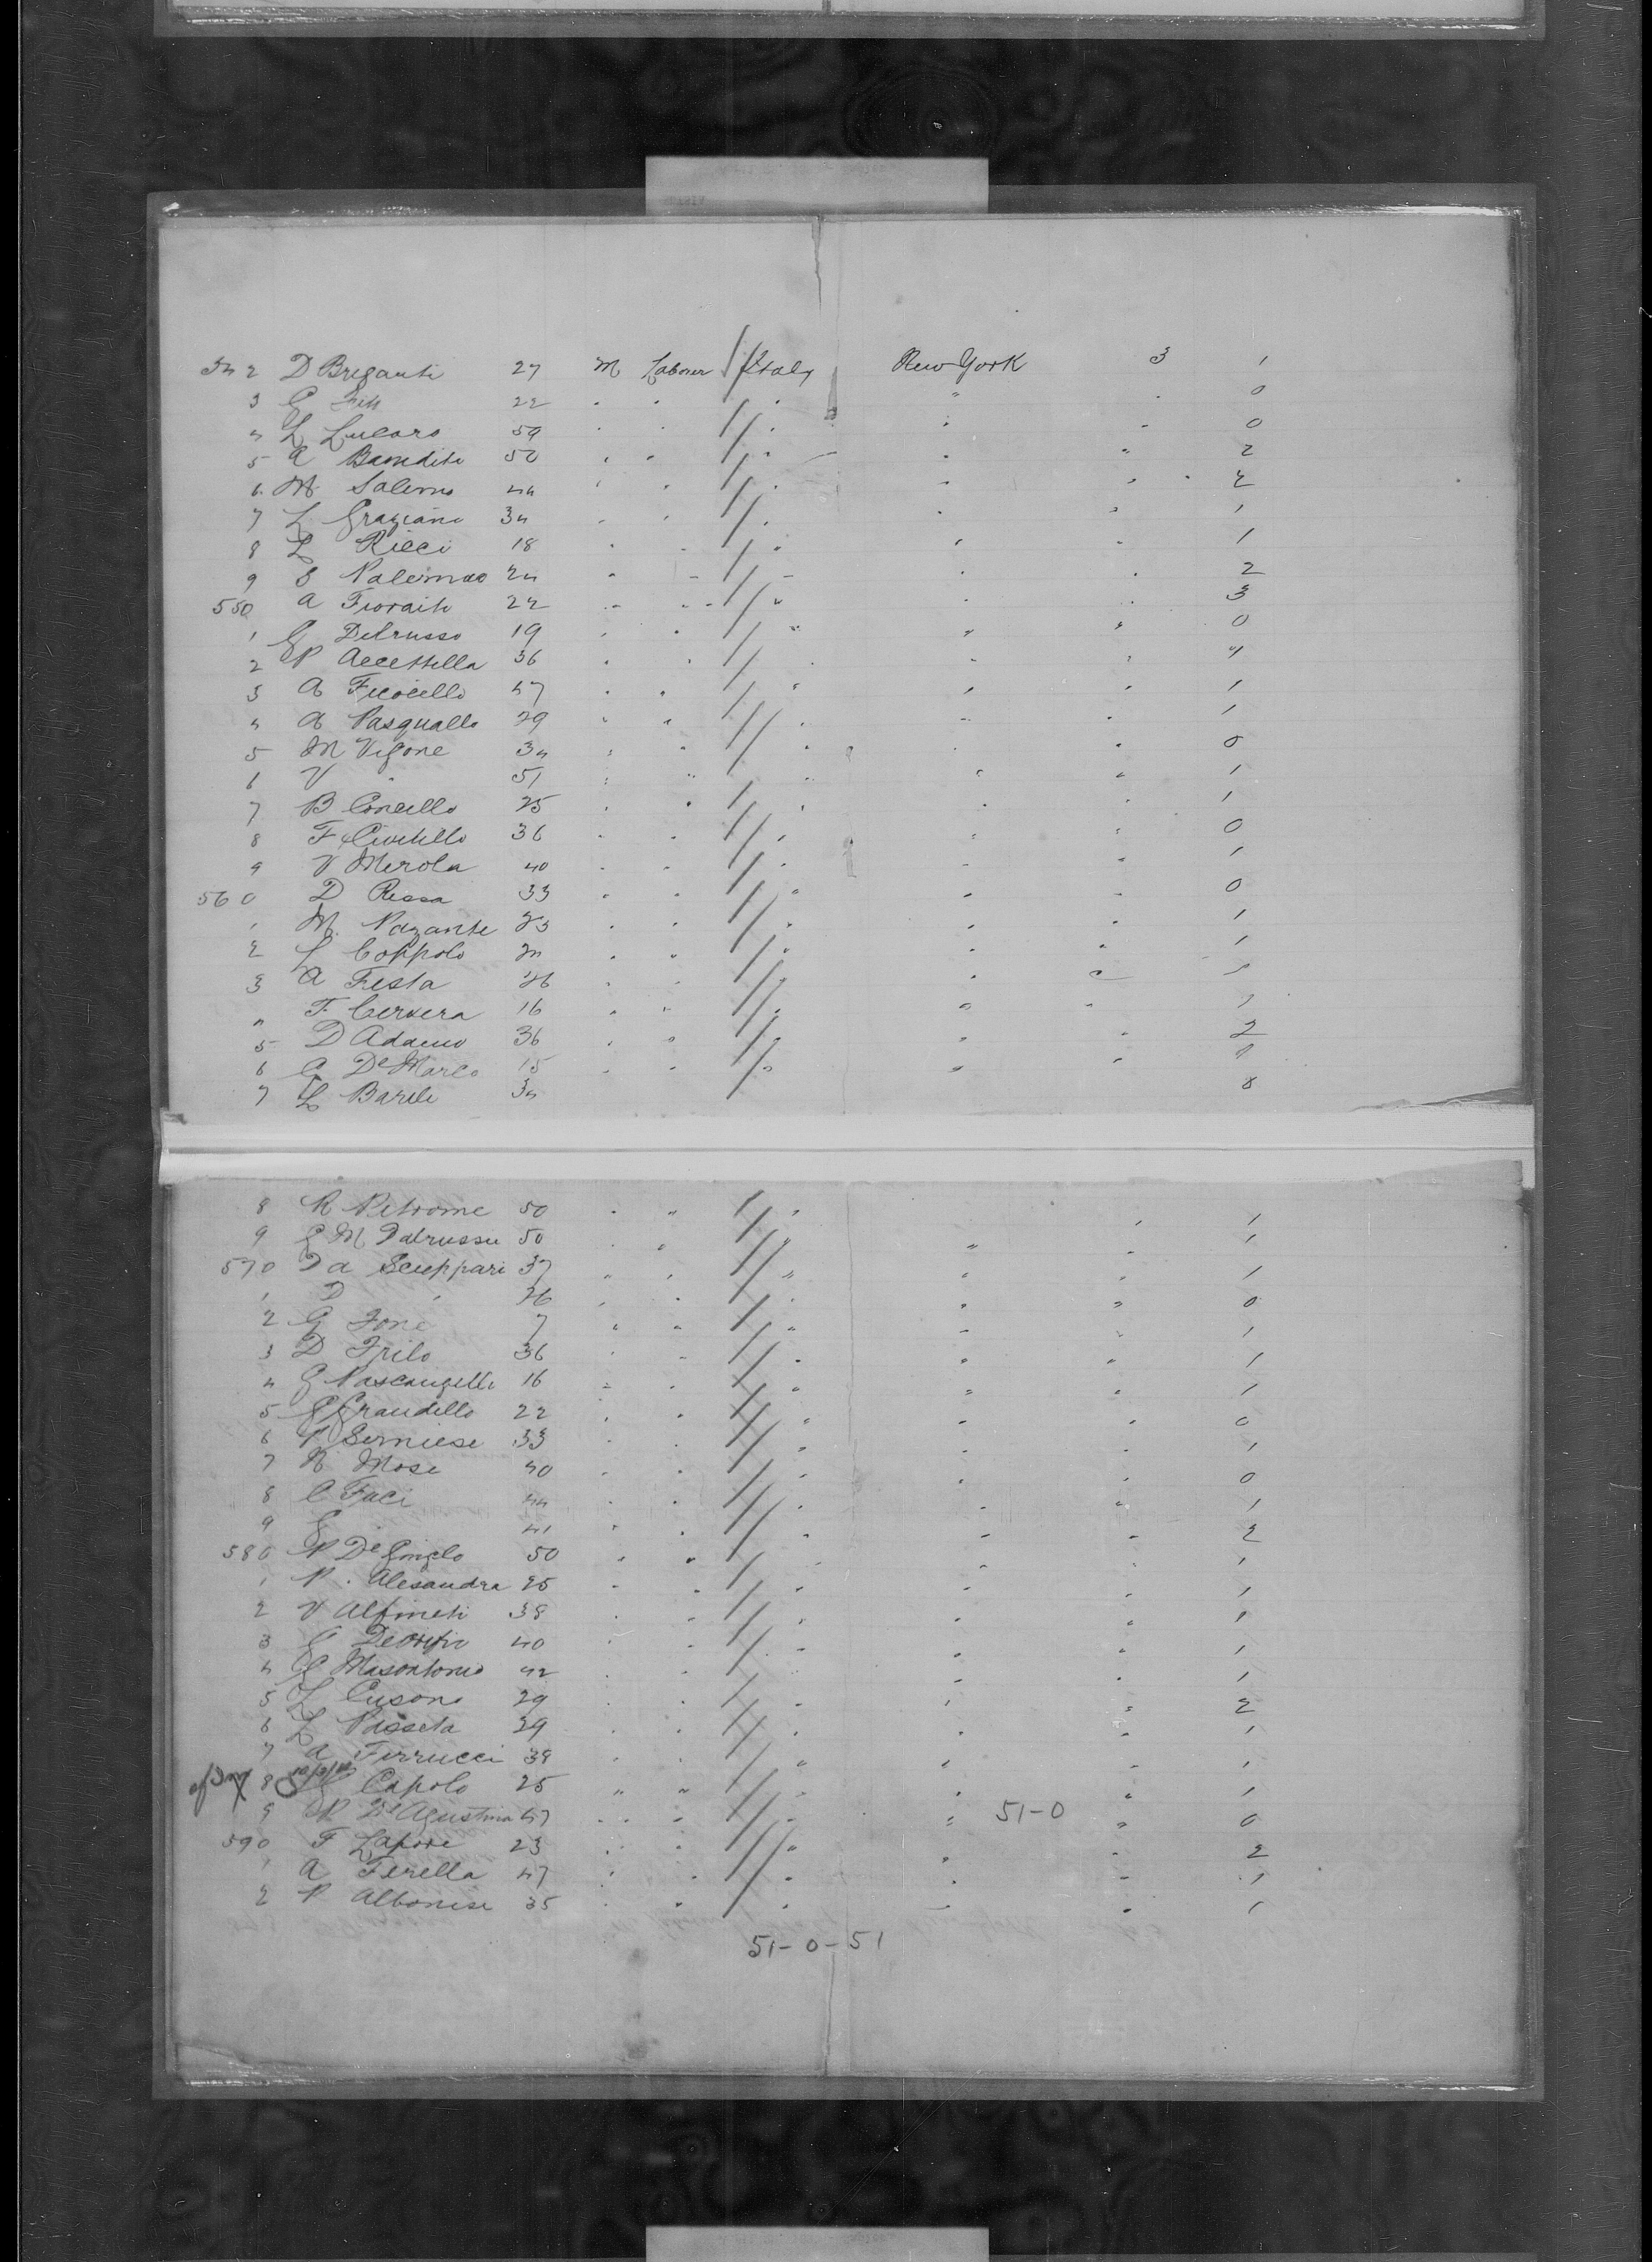 542 D Briganti 27 M Laborer Italy New York 3 1
3 G 22 " " " " " 0
4 L Lucaro 59 " " " " " 0
5 A Bandito 50 " " " " " 2
6 M Salerno 44 " " " " " 2
7 L Graziano 34 " " " " " 1
8 L Ricci 18 " " " " " 1
9 S Palermo 24 " " " " " 2
550 A Fioraito 22 " " " " " 3
1 G Delrusso 19 " " " " " 0
2 P Accettella 36 " " " " " 4
3 A Ficocello 47 " " " " " 1
4 A Pasquallo 29 " " " " " 1
5 M Vigone 34 " " " " " 0
6 V " 51 " " " " " 1
7 B Concello 25 " " " " " 1
8 F Civitello 36 " " " " " 0
9 V Merola 40 " " " " " 1
560 D Rissa 33 " " " " " 0
1 M. Pazante 23 " " " " " 1
2 L Coppolo 24 " " " " " 1
3 A Festa 26 " " " " " 1
4 F. Cervera 16 " " " " " 1
5 D Adamo 36 " " " " " 2
6 A De Marco 15 " " " " " 1
7 L Barile 34 8
8 R Petrome 50 " " " " 1
9 G M Dalrussu 50 " " " " " 1
570 Da Scieppari 37 " " " " " 1
1 D " 26 " " " " " 0
2 G Fone 7 " " " " " 1
3 D Frilo 36 " " " " " 1
4 G Pascangello 16 " " " " " 1
5 G Grandillo 22 " " " " " 0
6 P Serniese 33 " " " " " 1
7 R Mose 40 " " " " " 0
8 C Faci 44 " " " " " 1
9 G " 41 " " " " " 2
580 P De Gongelo 50 " " " " " 1
1 P. Alesandra 25 " " " " " 1
2 V Alfineti 38 " " " " " 1
3 G 40 " " " " " 1
4 G Masontonio 42 " " " " " 1
5 L Cusono 29 " " " " " 2
6 L Passeta 39 " " " " " 1
7 A Ferrucci 38 " " " " " 1
8 G Capolo 25 " " " " " 1
9 P De Agustino 47 " " " " 51-0 " 0
590 F Lapore 23 " " " " " 2
1 A Ferella 47 " " " " " 1
2 P Albonese 35 " " " " " 1
51-0-51